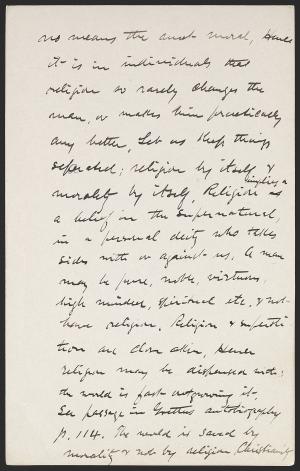 no means the most moral, Hence
it is in individuals that
religion so rarely changes the
man, or makes him practically
any better, Let us keep things
separated; religion by itself &
morality by itself, Religion implies a
a belief in the supernatural,
in a personal deity who takes
sides with or against us. A man
may be pure, noble, virtuous,
high minded, spiritual etc. & not
have religion. Religion & supersti
tion are close akin, Hence
religion may be dispensed with:
the world is fast outgrowing it.
See passage in Goethes autobiography
p. 114. The world is saved by
morality & not by religion Christianity